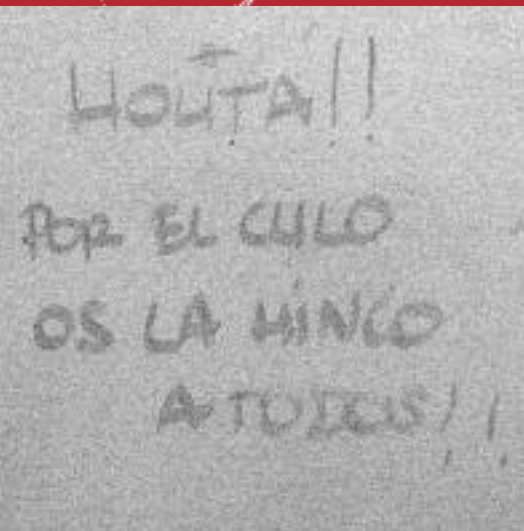 HOLITA!!
POR EL CULO
OS LA HINCO
A TODOS!!